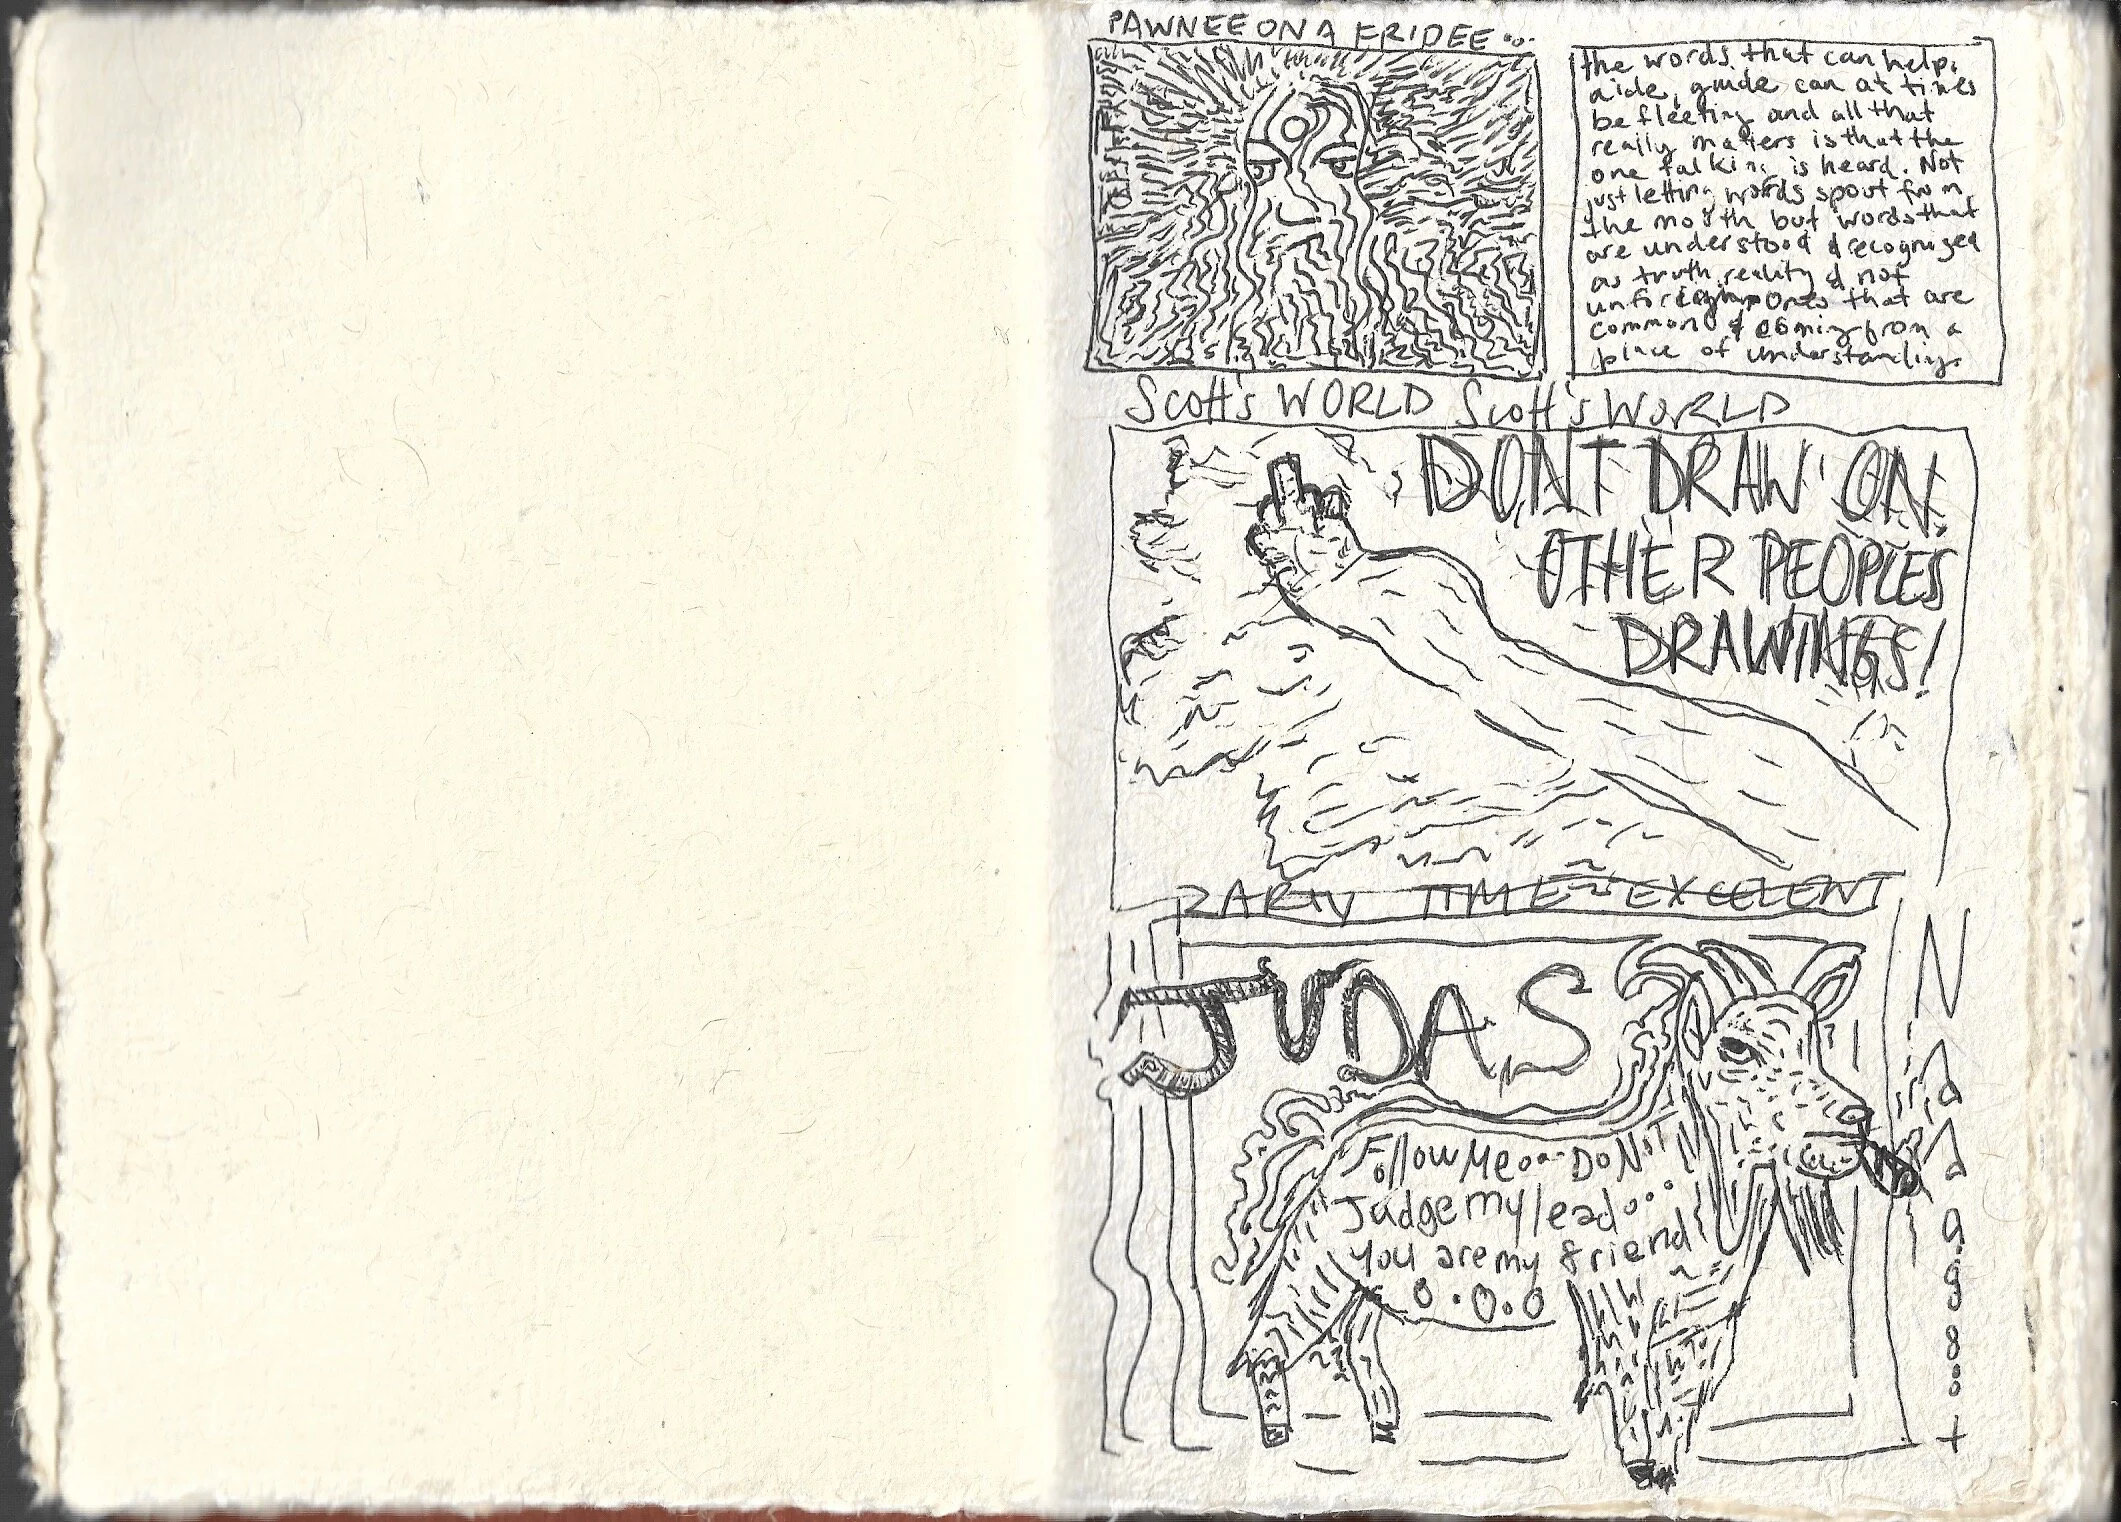 PAWNEE ON A FRIDEE...
the words that can help,
aide, guide can at times
be fleeting and all that
really matters is that the
one talking is heard. Not
just letting words spout from
the mouth but words that
are understood & recognized
as truth, reality & not
ones that are
common & coming from a
place of understanding.
Scott's WORLD Scott's WORLD
DONT DRAW ON
OTHER PEOPLES
DRAWINGS!
PARTY TIME EXCELENT
JUDAS
Follow Me... Do NOT
Judge my lead...
You are my friend